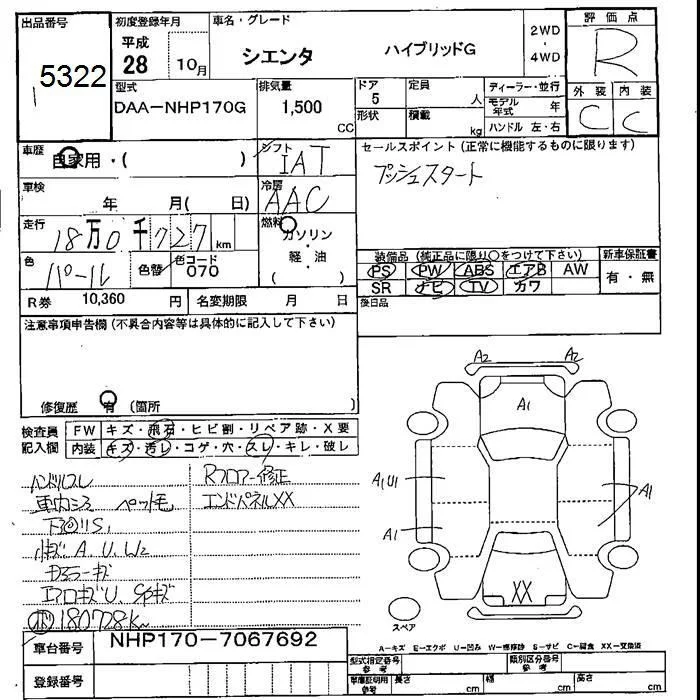 出品番号
5322
初度登録年月
平成
28
10月
車名・グレード
シエンタ
ハイブリッドG
2WD
・
4WD
評価点
R
外装 内装
C C
型式
DAA-NHP170G
排気量
1,500
CC
ドア
5
形状
定員
人
積載
kg
ディーラー・並行
モデル年式 年
ハンドル 左・右
車歴
自家用・( )
シフト
IAT
車検
年 月( 日)
冷房
AAC
走行
18万0千727km
燃料
ガソリン
・
軽・油
( )
色
パール
色替
色コード
070
R券 10,360 円
名変期限 月 日
セールスポイント (正常に機能するものに限ります)
プッシュスタート
装備品 (純正品に限り○をつけて下さい)
PS PW ABS エアB AW
SR ナビ TV カワ
新車保証書
有・無
後日品
注意事項申告欄 (不具合内容等は具体的に記入して下さい)
修復歴 有 (箇所 )
検査員記入欄
FW キズ・飛石・ヒビ割・リペア跡・X要
内装 キズ・汚レ・コゲ・穴・スレ・キレ・破レ
ハンドルスレ
車内シミ ペット毛
下回りS1
小キズ A、U、W2
ドアミラーキズ
エアロキズU、
180728km
Rフロアー修正
エンドパネルXX
A2 A2
A1
A1U1
A1
A1
XX
スペア
A-キズ E-エクボ U-凹み W-修理跡 S-サビ C-腐食 XX-交換済
車台番号 NHP170-7067692
登録番号
型式指定番号 参考
類別区分番号 参考
車庫証明用 参考
長さ cm
幅 cm
高さ cm